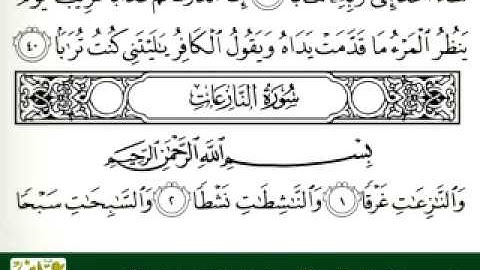 يَنظُرُ ٱلْمَرْءُ مَا قَدَّمَتْ يَدَاهُ وَيَقُولُ ٱلْكَافِرُ يَٰلَيْتَنِي كُنتُ تُرَٰبًا ٤٠
سُورَةُ النَّازِعَاتِ
بِسْمِ ٱللَّهِ ٱلرَّحْمَٰنِ ٱلرَّحِيمِ
وَٱلنَّٰزِعَٰتِ غَرْقًا ١ وَٱلنَّٰشِطَٰتِ نَشْطًا ٢ وَٱلسَّٰبِحَٰتِ سَبْحًا